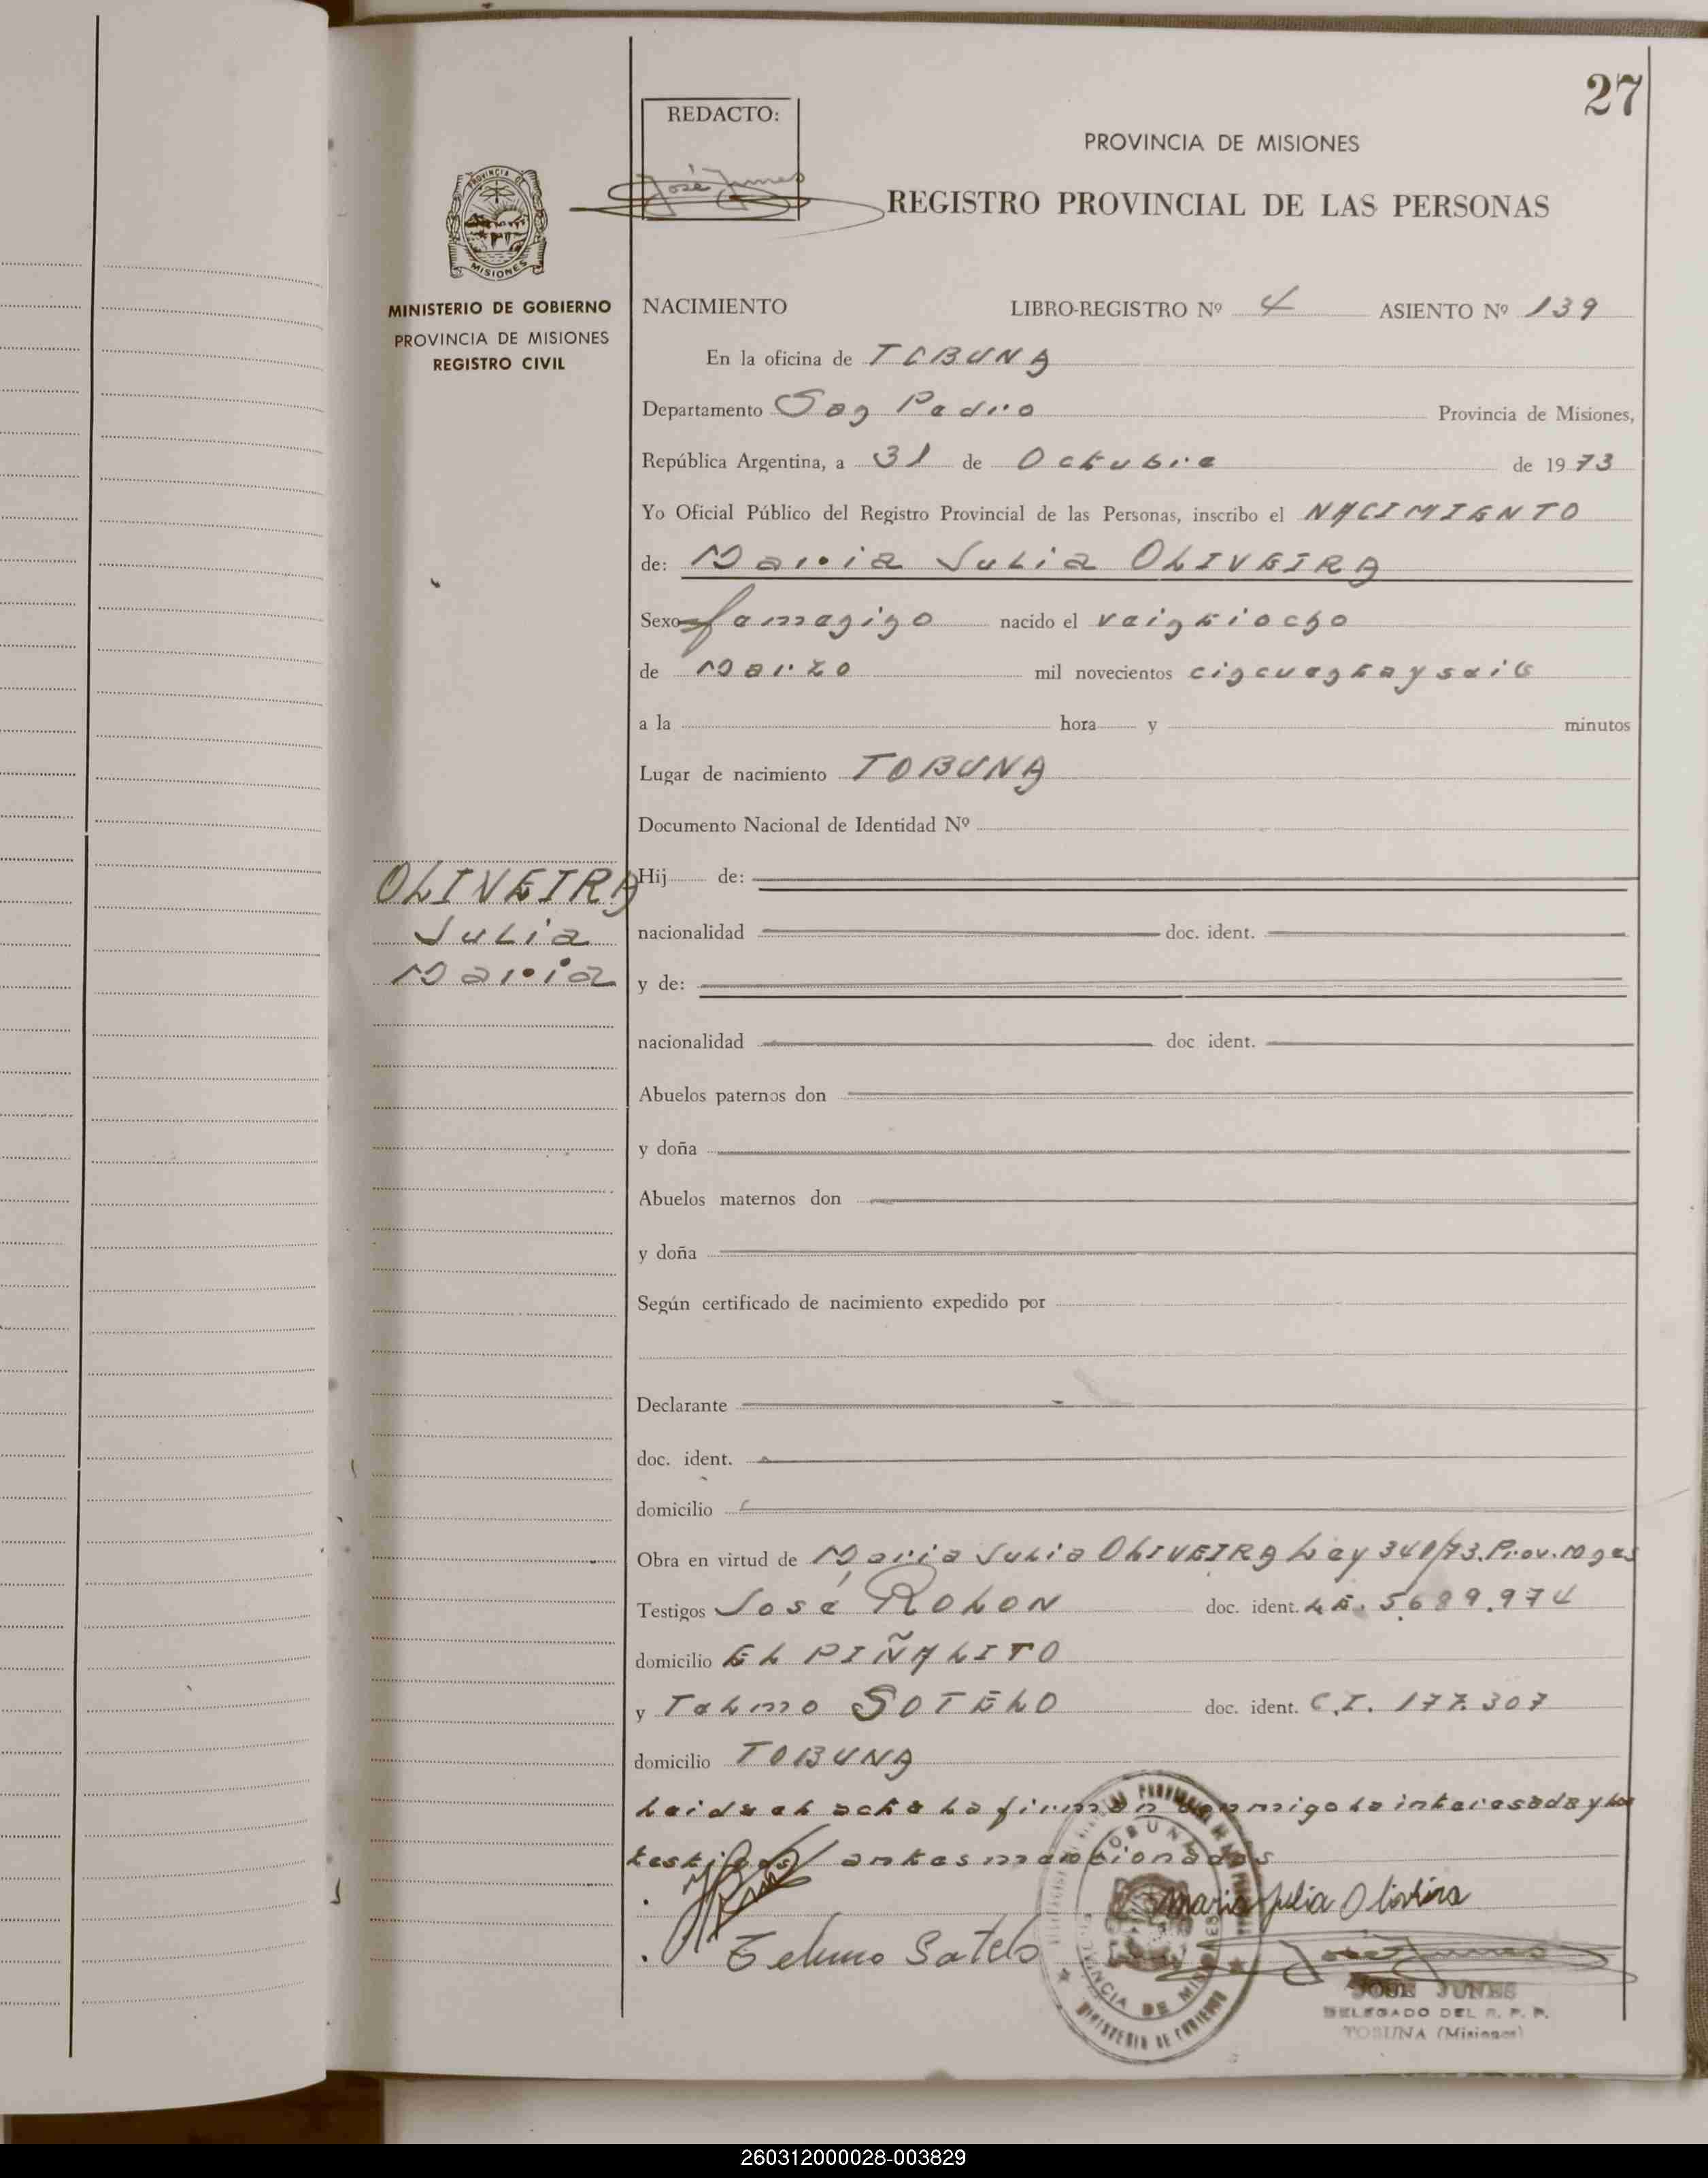 27
REDACTO:
José Junes
PROVINCIA DE MISIONES
REGISTRO PROVINCIAL DE LAS PERSONAS
PROVINCIA DE
MISIONES
MINISTERIO DE GOBIERNO
PROVINCIA DE MISIONES
REGISTRO CIVIL
NACIMIENTO LIBRO-REGISTRO Nº 4 ASIENTO Nº 139
En la oficina de TOBUNA
Departamento San Pedro Provincia de Misiones,
República Argentina, a 31 de Octubre de 1973
Yo Oficial Público del Registro Provincial de las Personas, inscribo el NACIMIENTO
de: Maria Julia OLIVEIRA
Sexo femenino nacido el veintiocho
de Marzo mil novecientos cincuenta y seis
a la hora y minutos
Lugar de nacimiento TOBUNA
Documento Nacional de Identidad Nº
OLIVEIRA
Julia
Maria
Hij de:
nacionalidad doc. ident.
y de:
nacionalidad doc ident.
Abuelos paternos don
y doña
Abuelos maternos don
y doña
Según certificado de nacimiento expedido por
Declarante
doc. ident.
domicilio
Obra en virtud de Maria Julia OLIVEIRA Ley 340/73. Prov. Mnes
Testigos José ROLON doc. ident. L.E. 5.689.974
domicilio EL PIÑALITO
y Telmo SOTELO doc. ident. C.I. 177.307
domicilio TOBUNA
Leida el acta la firman conmigo la interesada y los
testigos antes mencionados
Maria Julia Oliveira
Telmo Sotelo
José Junes
TOBUNA
PROVINCIA DE MISIONES
MINISTERIO DE GOBIERNO
JOSE JUNES
DELEGADO DEL R. P. P.
TOBUNA (Misiones)
260312000028-003829